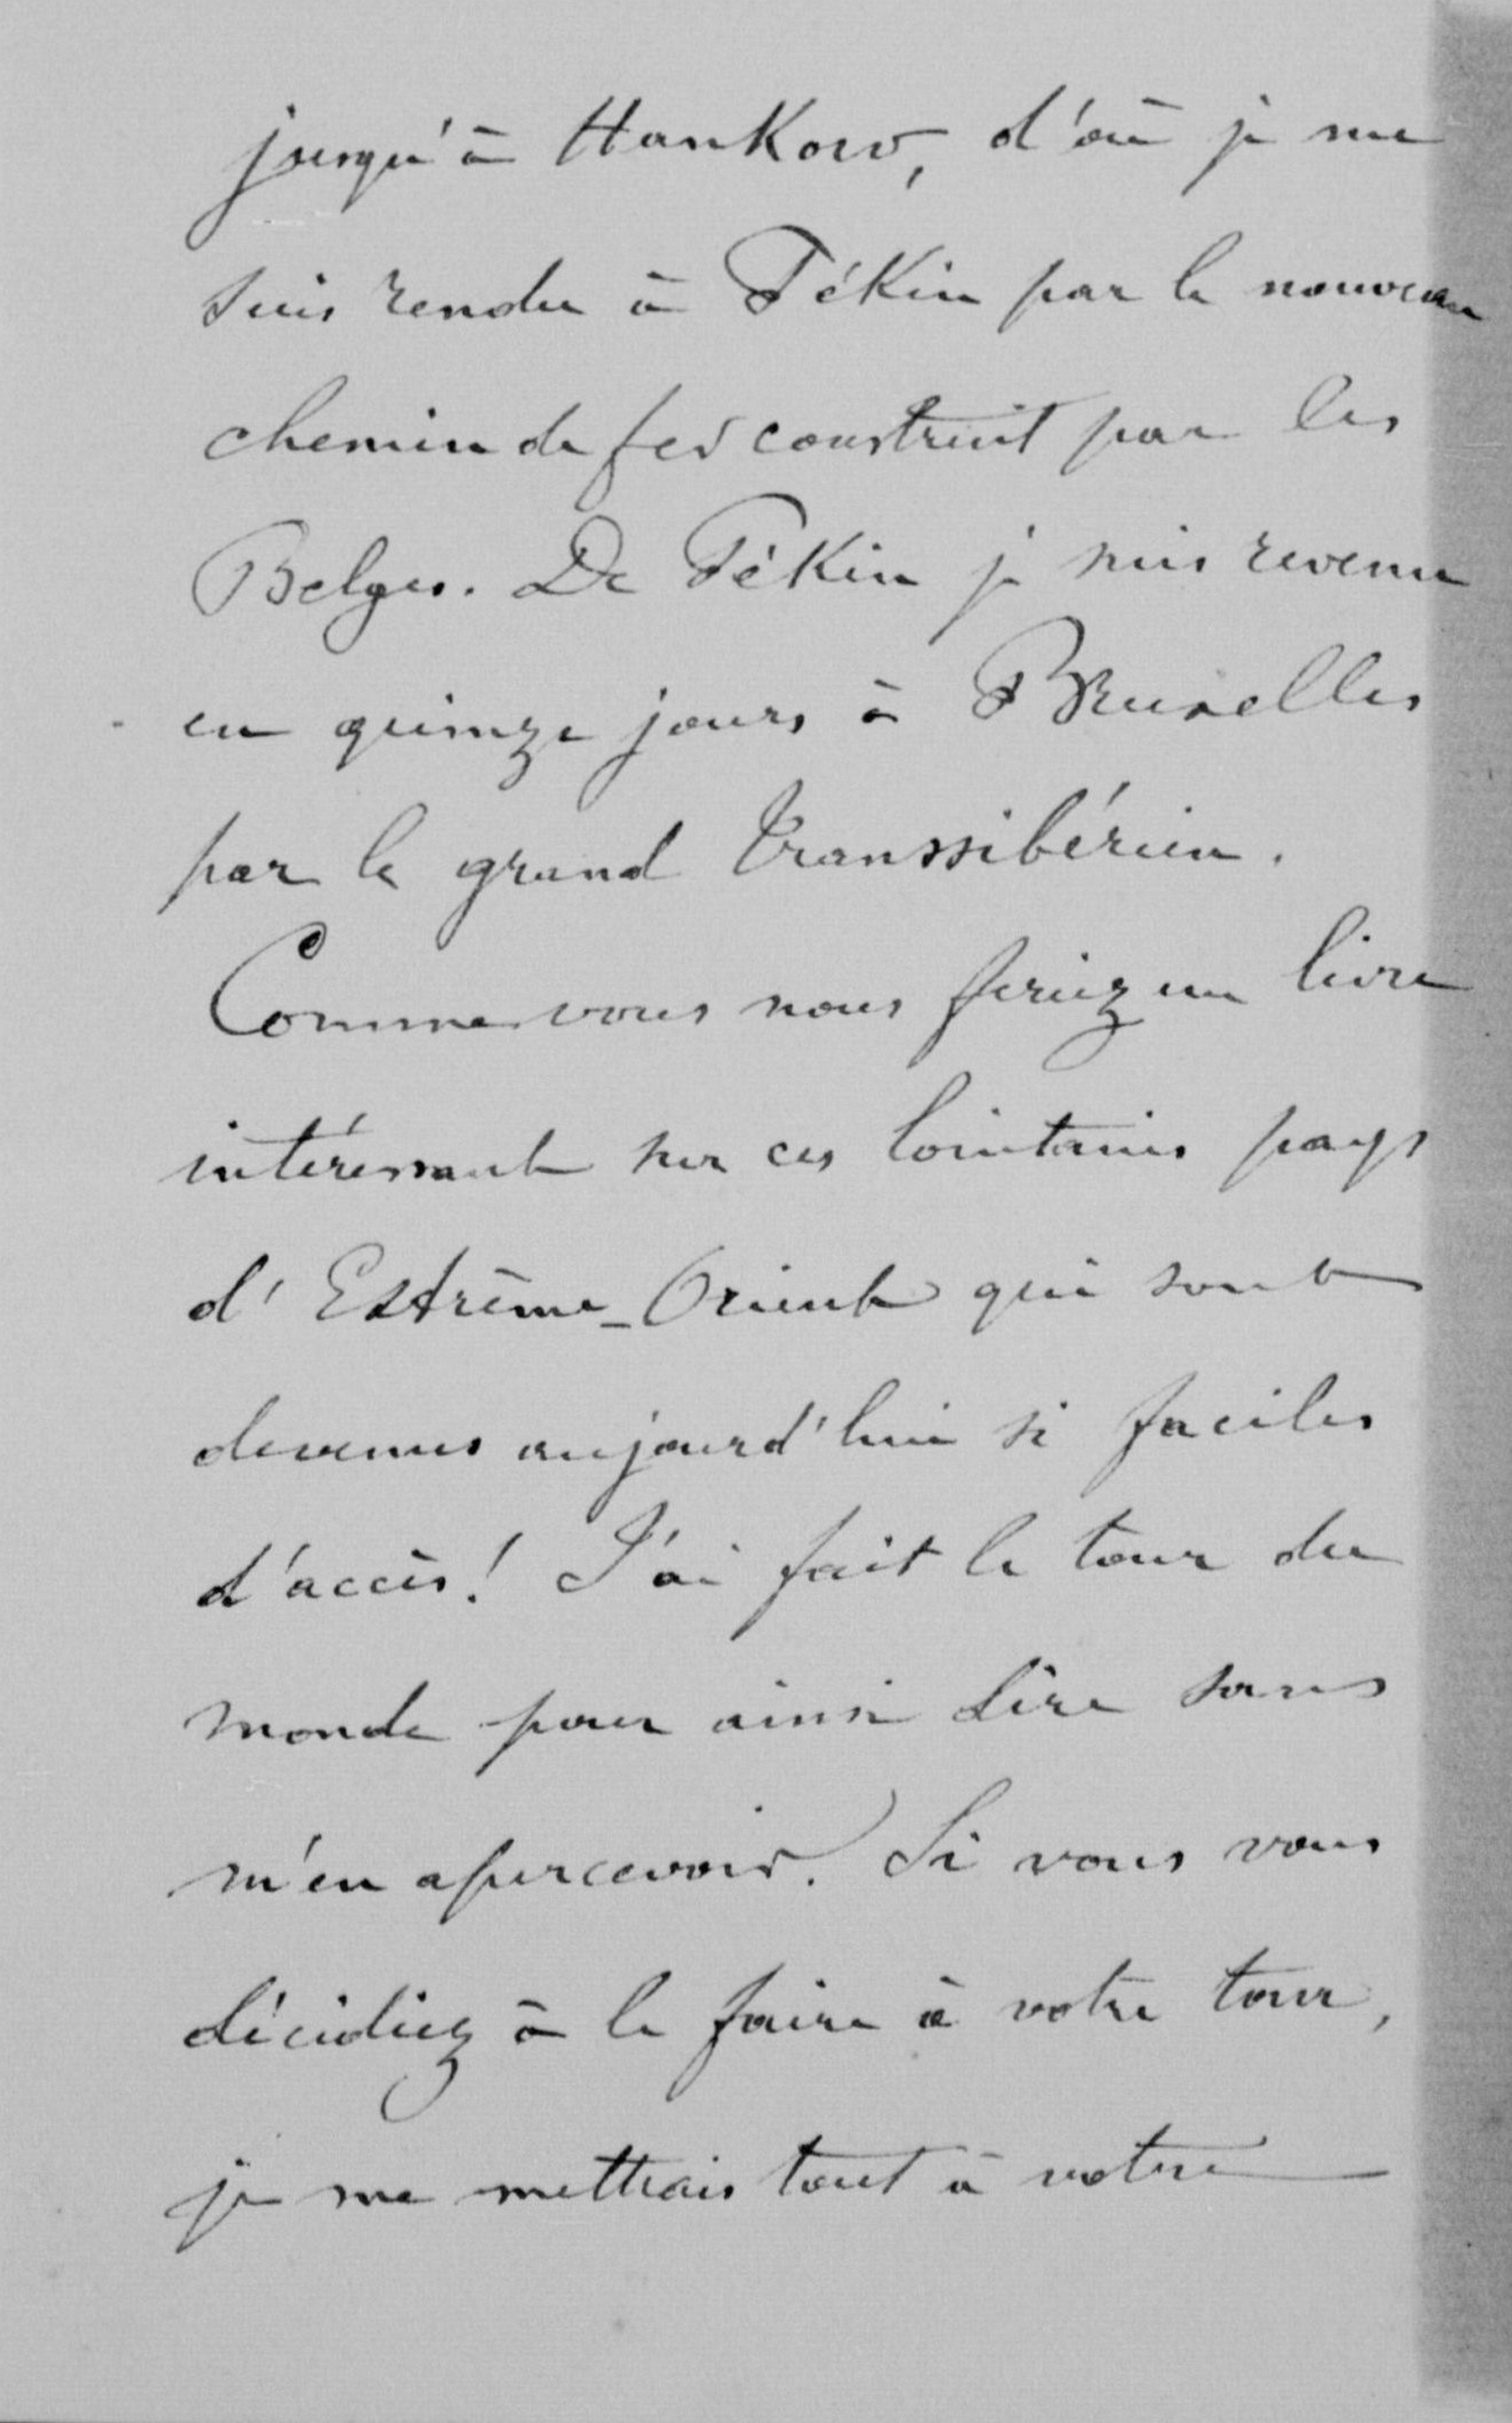 jusqu'à Hankow, d'où je me
suis rendu à Pékin par le nouveau
chemin de fer construit par les
Belges. De Pékin je suis revenu
en quinze jours à Bruxelles
par le grand Transsibérien.
Comme vous nous feriez un livre
intéressant sur ces lointains pays
d'Extrême-Orient qui sont
devenus aujourd'hui si faciles
d'accès! J'ai fait le tour du
monde pour ainsi dire sans
m'en apercevoir. Si vous vous
décidiez à le faire à votre tour,
je me mettrais tout à votre